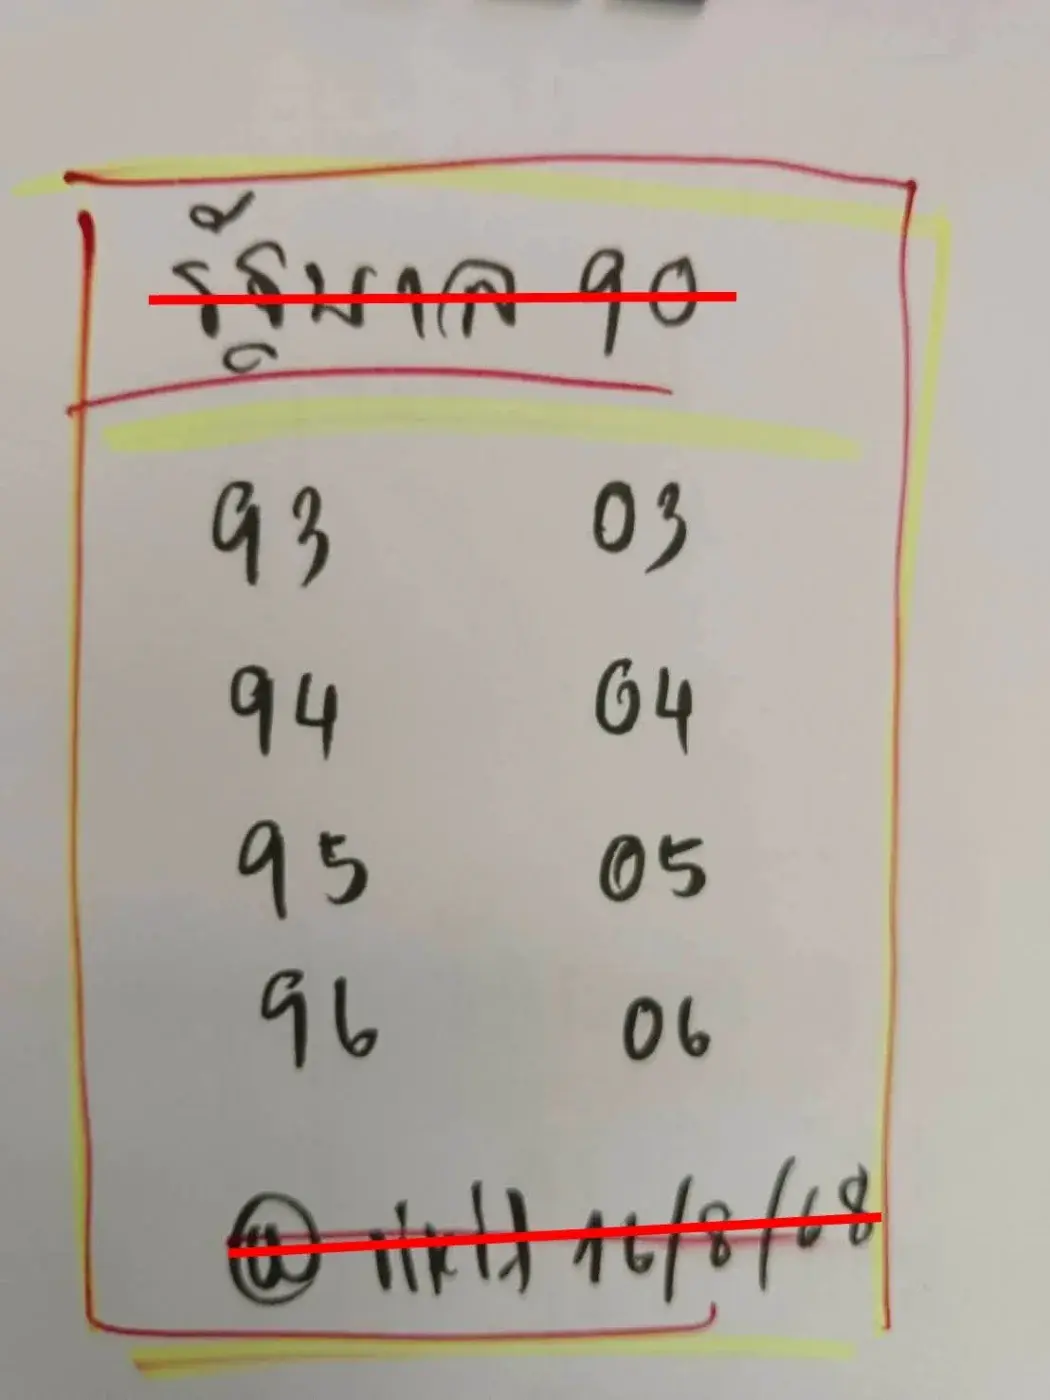 รัฐบาล 90
93 03
94 04
95 05
96 06
16/8/68